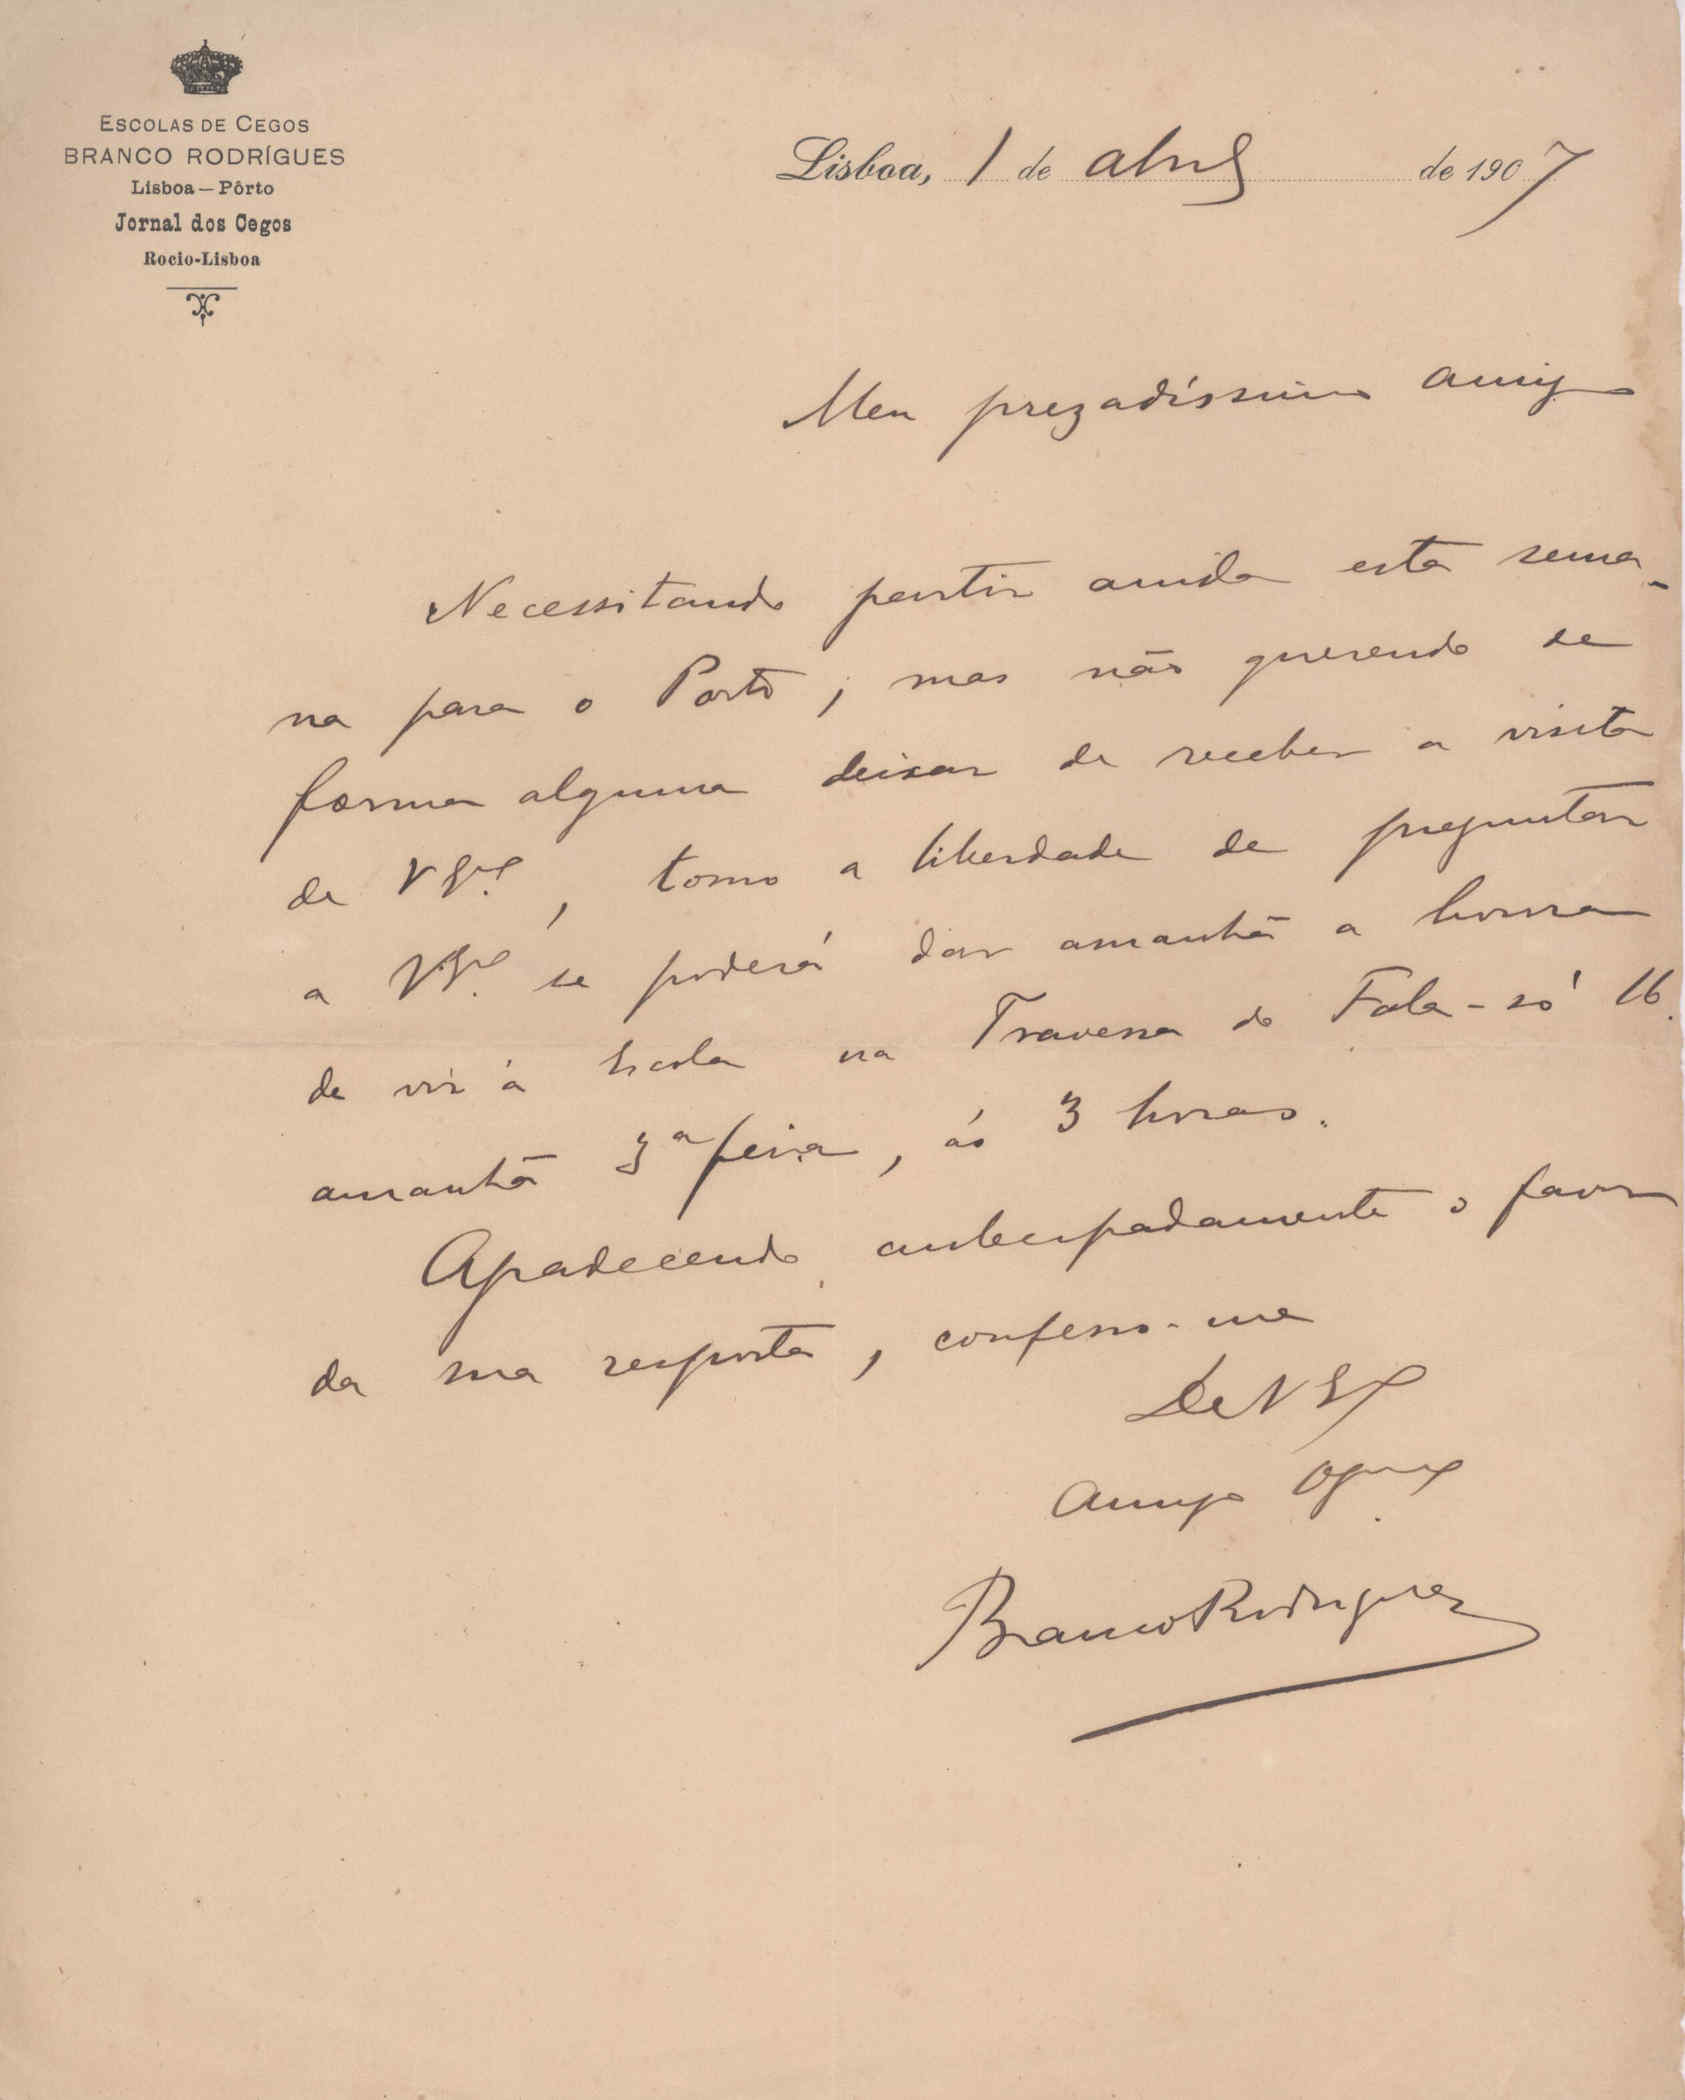 ESCOLAS DE CEGOS
BRANCO RODRÍGUES
Lisboa — Pôrto
Jornal dos Cegos
Rocio-Lisboa
Lisboa, 1 de abril de 1907
Meu prezadíssimo amigo
Necessitando partir ainda esta sema-
na para o Porto, mas não querendo de
forma alguma deixar de receber a visita
de V Exª, tomo a liberdade de preguntar
a V Exª se poderá dar amanhã a honra
de vir á Escola na Travessa do Fala-só 16.
amanhã 3ª feira, ás 3 horas.
Agradecendo antecipadamente o favor
da sua resposta, confesso-me
De V Exª
Amigo
Branco Rodrigues